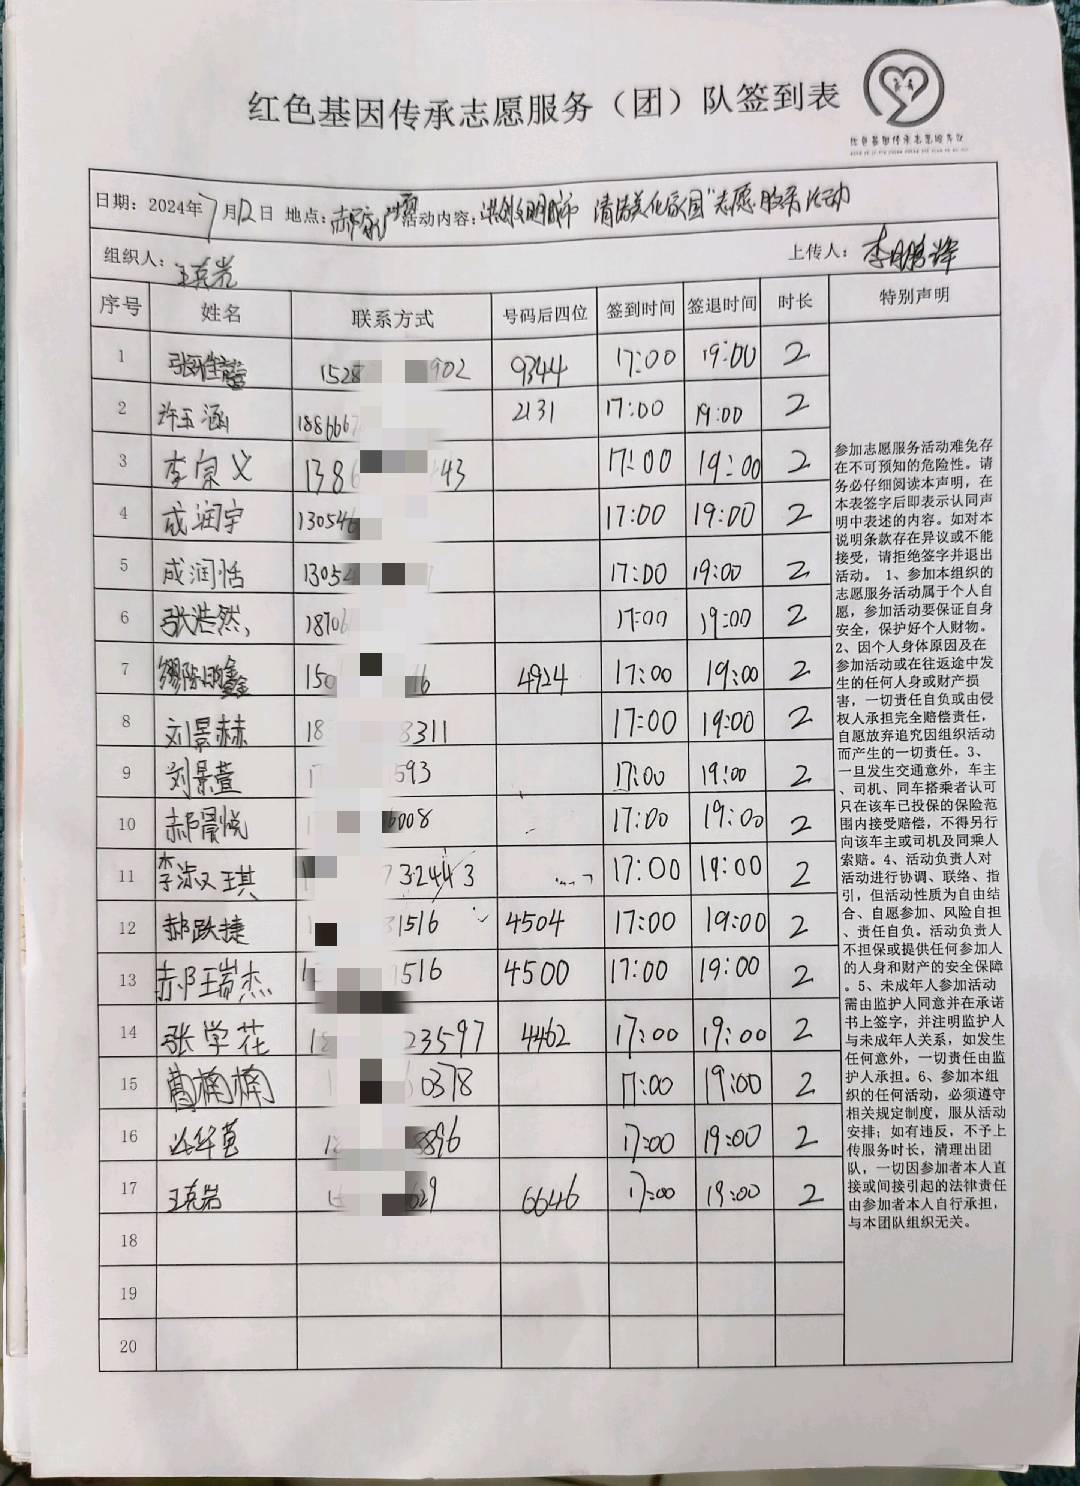 红色基因传承志愿服务（团）队签到表
日期：2024年7月12日 地点： 活动内容： 清洁美化家园"志愿服务活动
组织人：王克岩 上传人：李鹏
序号 姓名 联系方式 号码后四位 签到时间 签退时间 时长 特别声明
1 张雅 1528 902 9344 17:00 19:00 2
2 许玉涵 188666 2131 17:00 19:00 2
3 李宗义 1386 43 17:00 19:00 2
4 成润宇 130546 17:00 19:00 2
5 成润恬 1305 17:00 19:00 2
6 张浩然 1870 17:00 19:00 2
7 150 16 4924 17:00 19:00 2
8 刘景赫 18 8311 17:00 19:00 2
9 刘景萱 1 593 17:00 19:00 2
10 郝景悦 1 6008 17:00 19:00 2
11 李淑琪 17:00 19:00 2
12 郝跃捷 31516 4504 17:00 19:00 2
13 郝瑞杰 1516 4500 17:00 19:00 2
14 张学花 18 23597 4462 17:00 19:00 2
15 曹楠楠 1 0378 17:00 19:00 2
16 8896 17:00 19:00 2
17 王克岩 629 6646 17:00 19:00 2
18
19
20
参加志愿服务活动难免存
在不可预知的危险性。请
务必仔细阅读本声明，在
本表签字后即表示认同声
明中表述的内容。如对本
说明条款存在异议或不能
接受，请拒绝签字并退出
活动。 1、参加本组织的
志愿服务活动属于个人自
愿，参加活动要保证自身
安全，保护好个人财物。
2、因个人身体原因及在
参加活动或在往返途中发
生的任何人身或财产损
害，一切责任自负或由侵
权人承担完全赔偿责任，
自愿放弃追究因组织活动
而产生的一切责任。3、
一旦发生交通意外，车主
、司机、同车搭乘者认可
只在该车已投保的保险范
围内接受赔偿，不得另行
向该车主或司机及同乘人
索赔。4、活动负责人对
活动进行协调、联络、指
引，但活动性质为自由结
合、自愿参加、风险自担
、责任自负。活动负责人
不担保或提供任何参加人
的人身和财产的安全保障
。5、未成年人参加活动
需由监护人同意并在承诺
书上签字，并注明监护人
与未成年人关系，如发生
任何意外，一切责任由监
护人承担。6、参加本组
织的任何活动，必须遵守
相关规定制度，服从活动
安排；如有违反，不予上
传服务时长，清理出团
队，一切因参加者本人直
接或间接引起的法律责任
由参加者本人自行承担，
与本团队组织无关。